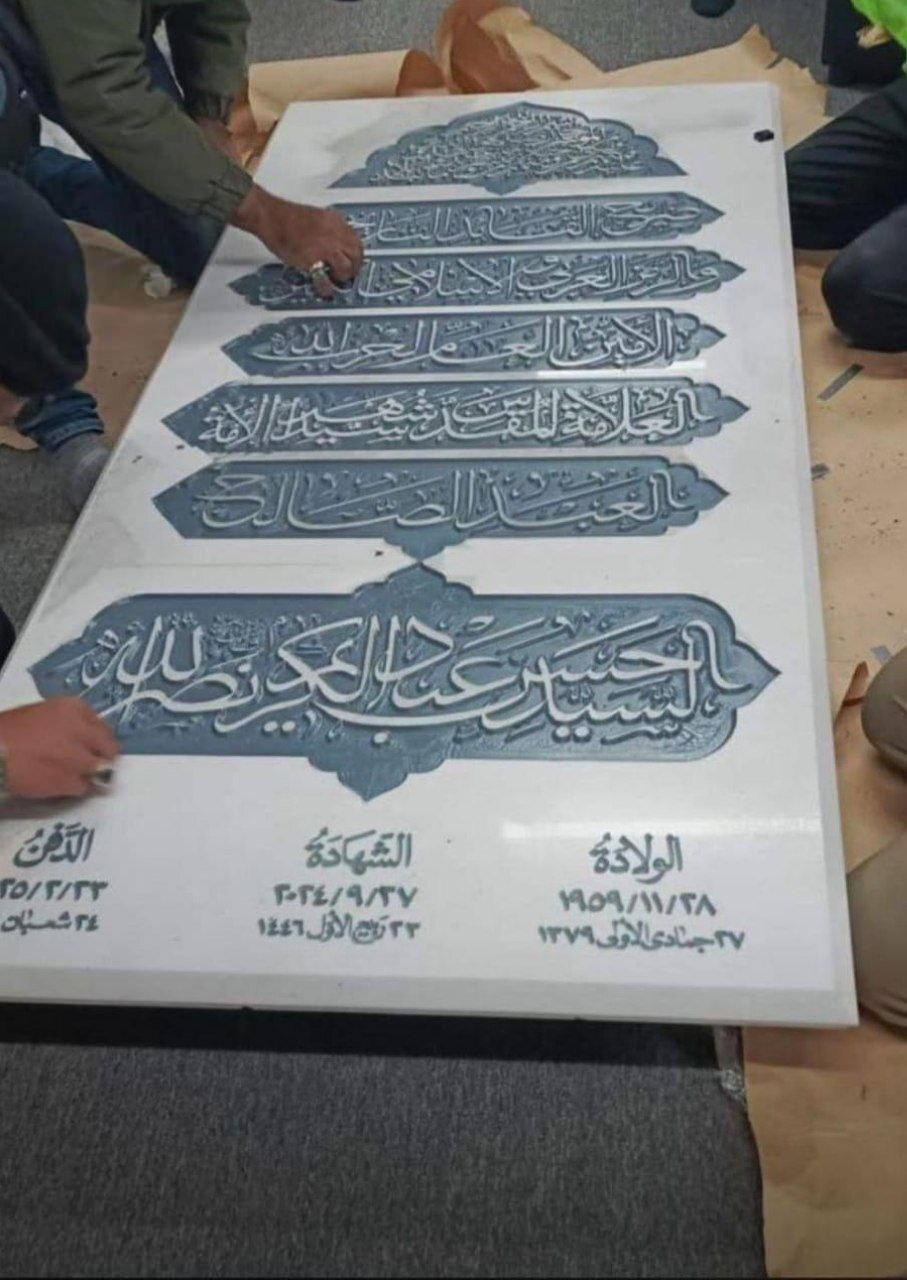 ضريح القائد
والرمز العربي الإسلامي
الأمين العام لحزب الله
العلامة المقدس شهيد الأمة
العبد الصالح
السيد حسن عبد الكريم نصر الله
الولادة
٢٨/١١/١٩٥٩
٢٧ جمادى الأولى ١٣٧٩
الشهادة
٢٧/٩/٢٠٢٤
٢٣ ربيع الأول ١٤٤٦
الدفن
٢٣/٢/٢٥
٢٤ شعبان